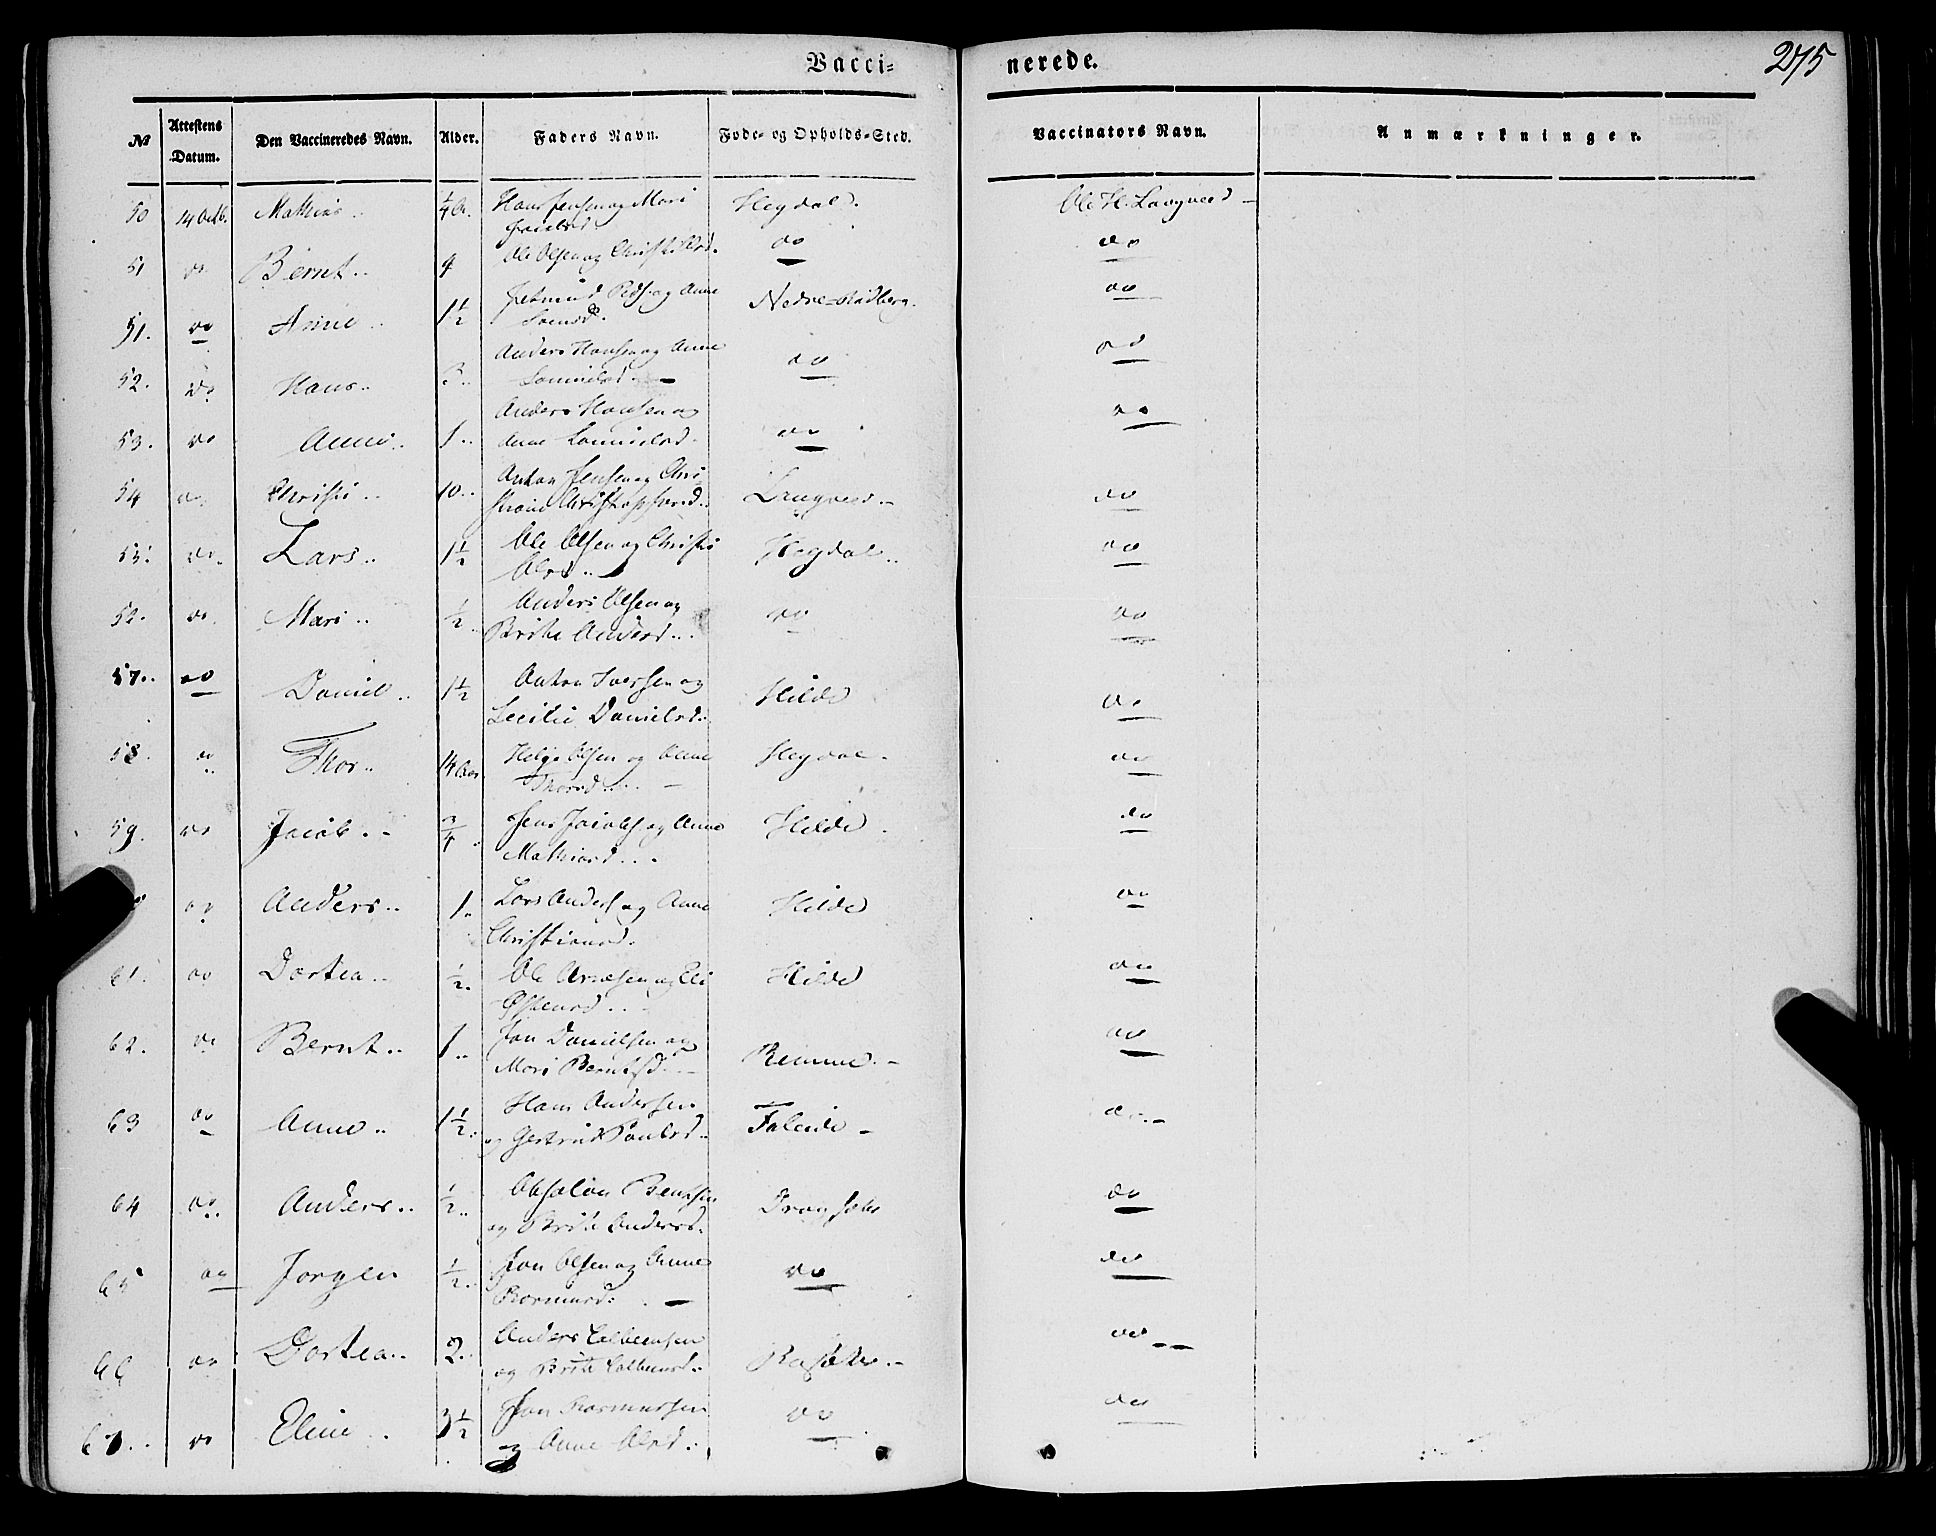 Vacci- nerede. 275
№ Attestens Datum. Den Vaccineredes Navn. Alder. Faders Navn. Føde- og Opholds-Sted. Vaccinators Navn. Anmærkninger.
50 14 Octb. Mathias .. 1/4 A. Hans Jensen og Mari Hegdal. Ole H. Langved
51 do Bernt .. 4 Ole Olsen og Christi Olsd. do do
51. do Anne .. 1 1/2 Peds. og Anne Nedre- do
52. do Hans .. 3.. Anders Hansen og Anne do do
Danielsd.
53. do Anne. 1.. Anders Hansen og do do
Anne Danielsd.
54 do Christi .. 10.. Anton Jensen og Chri- Langved do
Christophersd..
55. do. Lars .. 1 1/2 Ole Olsen og Christi Hegdal .. do
Olsd..
52. do. Mari .. 1/2 .. Anders Olsen og do do
Brithe Andersd...
57.. do Daniel .. 1 1/2 Anton Iversen og Hilde do
Cecilie Danielsd..
58. do Thor .. 14 Aar Helge Olsen og Anne Hegdal. do
Thorsd....
59. do Jacob .. 3/4 . Jens Jacobs. og Anne Hilde . do
Mathiasd...
do Anders .. 1.. Lars Anders. og Anne Hilde do
Christiansd.
61. do Dortea .. 1/2. Ole Arnesen og Eli Hilde do
Østensd...
62. do Bernt .. 1.. Jon Danielsen og Remme. - do
Mari Berntsd..
63 do Anne .. 1 1/2. Hans Andersen Faleide - do.-
og Gertrud Paulsd..
64 do.. Anders .. 1/2.. Absalon Bentsen do
og Brithe Andersd.
65 do Jorgen 1/2.. Jon Olsen og Anne do do
Rasmusd.
66 do Dortea .. 2.. Anders Colbensen do --
og Brithe Colbensd..
67.. do Eline .. 3 1/2 Jon Rasmussen do do
og Anne Olsd..